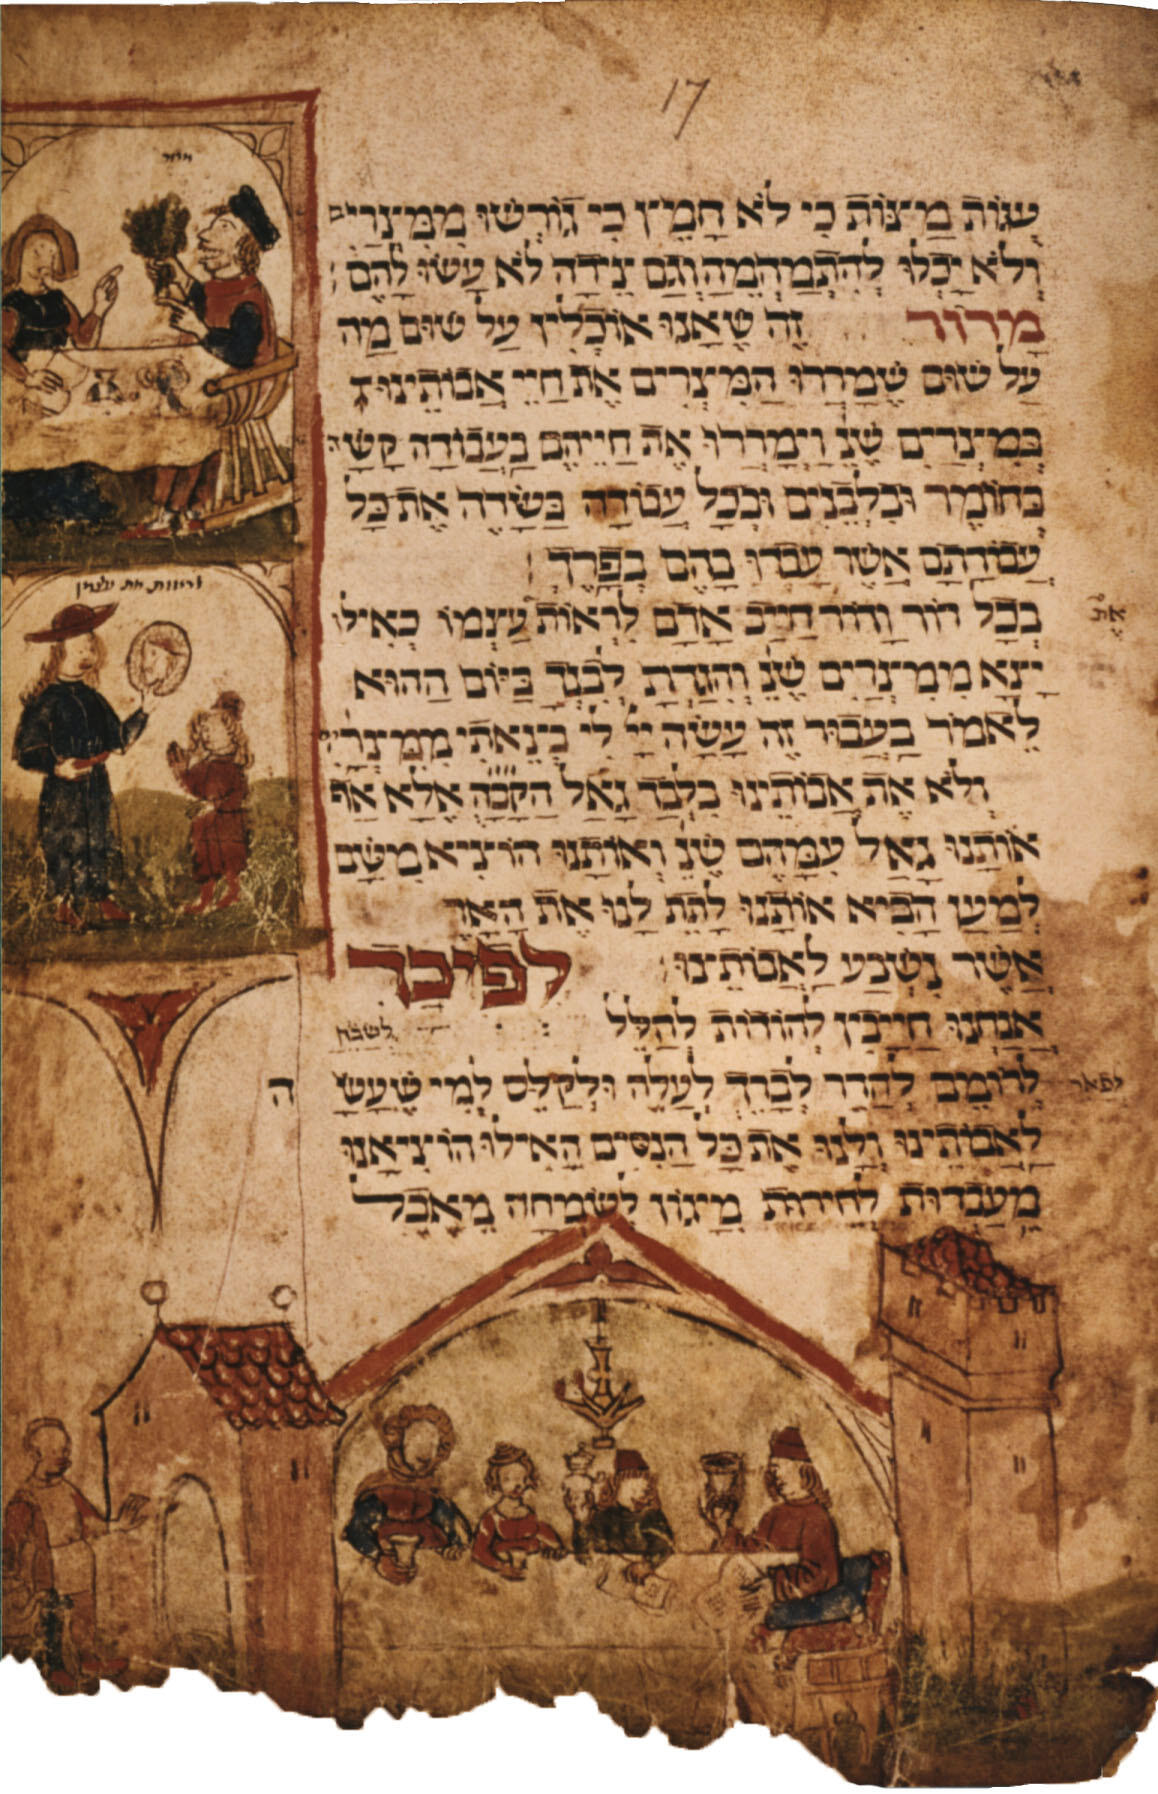 17
עֻגוֹת מַצּוֹת כִי לֹא חָמֵץ כִי גוֹרְשׁוּ מִמִצְרַיִם
וְלֹא יָכְלוּ לְהִתְמַהְמֵהַ וְגַם צֵידָה לֹא עָשׂוּ לָהֶם
מָרוֹר זֶה שֶׁאָנוּ אוֹכְלִין עַל שׁוּם מַה
עַל שׁוּם שֶׁמֵרְרוּ הַמִצְרִים אֶת חַיֵי אֲבוֹתֵינוּ
בְּמִצְרַיִם שֶׁנֶ וַיְמָרְרוּ אֶת חַיֵיהֶם בַעֲבוֹדָה קָשָׁה
בְּחוֹמֶר וּבִלְבֵנִים וּבְכָל עֲבוֹדָה בַּשָׂדֶה אֶת כָּל
עֲבוֹדָתָם אֲשֶׁר עָבְדוּ בָהֶם בְפָרֶךְ
בְכָל דוֹר וָדוֹר חַיַיב אָדָם לִרְאוֹת עַצְמוֹ כְאִילוּ
יָצָא מִמִצְרַיִם שֶׁנֶ וְהִגַדְתָ לְבִנְךָ בַּיוֹם הַהוּא
לֵאמֹר בַעֲבוּר זֶה עָשָׂה יְיָ לִי בְצֵאתִי מִמִצְרָיִם
וְלֹא אֶת אֲבוֹתֵינוּ בִלְבַד גָאַל הַקָבָּה אֶלָא אַף
אוֹתָנוּ גָאַל עִמָהֶם שֶׁנֶ וְאוֹתָנוּ הוֹצִיא מִשָׁם
לְמַעַן הָבִיא אוֹתָנוּ לָתֶת לָנוּ אֶת הָאָרֶ
אֲשֶׁר נִשְׁבַע לַאֲבוֹתֵינוּ לפיכך
אֲנַחְנוּ חַיָיבִין לְהוֹדוֹת לְהַלֵל לְשַׁבֵחַ
לפאר
לְרוֹמֵם לְהַדֵר לְבָרֵךְ לְעַלֵה וּלְקַלֵס לְמִי שֶׁעָשָׂה
לַאֲבוֹתֵינוּ וְלָנוּ אֶת כָּל הַנִסִים הָאֵילוּ הוֹצִיאָנוּ
מֵעַבְדוּת לְחֵירוּת מִיָגוֹן לְשִׂמְחָה מֵאֵבֶל
מרור